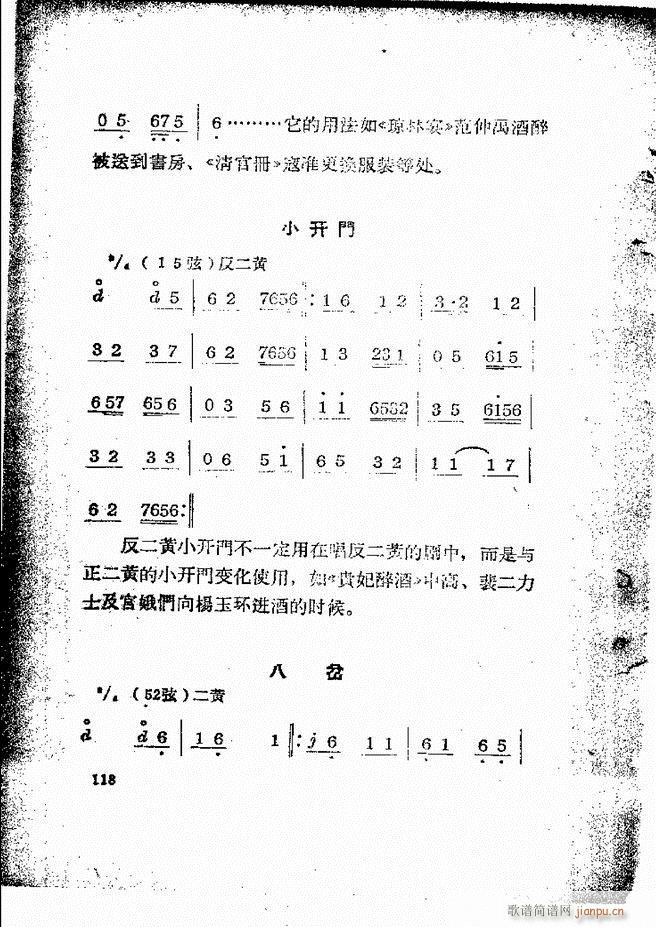 0 5 675 | 6 ⋯⋯⋯ 它的用法如《琼林宴》范仲禹酒醉
被送到書房、《清官冊》寇准更換服裝等处。
小 开 門
²/₄ (1 5弦)反二黄
d d 5 | 6 2 7656 |: 1 6 1 2 | 3·2 1 2 |
3 2 3 7 | 6 2 7656 | 1 3 231 | 0 5 615 |
657 656 | 0 3 5 6 | 1 1 6532 | 3 5 6156 |
3 2 3 3 | 0 6 5 1 | 6 5 3 2 | 1 1 1 7 |
6 2 7656 :||
反二黄小开門不一定用在唱反二黄的剧中，而是与
正二黄的小开門变化使用，如《貴妃醉酒》中高、裴二力
士及宫娥們向楊玉环进酒的时候。
八 岔
²/₄ (52弦)二黄
d d 6 | 1 6 1 ||: j 6 1 1 | 6 1 6 5 |
118
歌谱简谱网 jianpu.cn